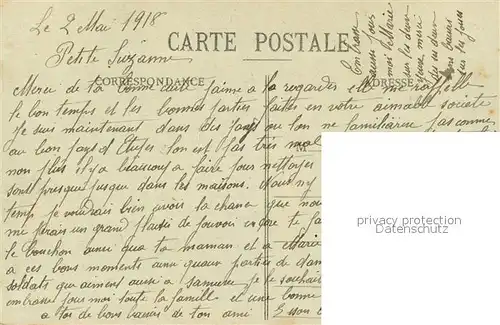 Le 2 Mai 1918
Petite Suzanne
CARTE POSTALE
CORRESPONDANCE
ADRESSE
Merci de ta bonne carte j'aime a la regarder elle me rappelle
le bon temps et les bonnes parties faites en votre aimable société
Je suis maintenant dans des pays ou l'on ne familiarise pas comme
au bon pays d' l'on est pas très mal
non plus il y a beaucoup a faire pour nettoyer
sont presque jusque dans les maisons. Nous
temps je voudrais bien avoir la chance que nous
me ferais un grand plaisir de pouvoir encore te fa
le bouchon ainsi que ta maman et a Marie
a ces bons moments ainsi quaux parties de dam
soldats qui aiment aussi a samuser Je te souhait
embrasse pour moi toute la famille et une bonne
a toi de bons baisers de ton ami
Embrasse
aussi pour
moi Marie
sur les deux
privacy protection
Datenschutz